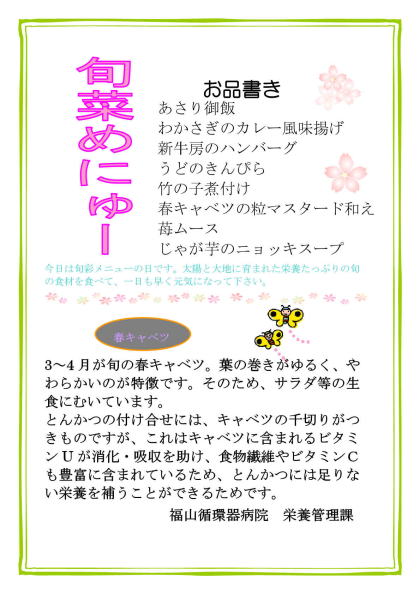 旬菜めにゅー
お品書き
あさり御飯
わかさぎのカレー風味揚げ
新牛房のハンバーグ
うどのきんぴら
竹の子煮付け
春キャベツの粒マスタード和え
苺ムース
じゃが芋のニョッキスープ
今日は旬彩メニューの日です。太陽と大地に育まれた栄養たっぷりの旬
の食材を食べて、一日も早く元気になって下さい。
春キャベツ
3～4月が旬の春キャベツ。葉の巻きがゆるく、や
わらかいのが特徴です。そのため、サラダ等の生
食にむいています。
とんかつの付け合せには、キャベツの千切りがつ
きものですが、これはキャベツに含まれるビタミ
ンUが消化・吸収を助け、食物繊維やビタミンC
も豊富に含まれているため、とんかつには足りな
い栄養を補うことができるためです。
福山循環器病院　栄養管理課